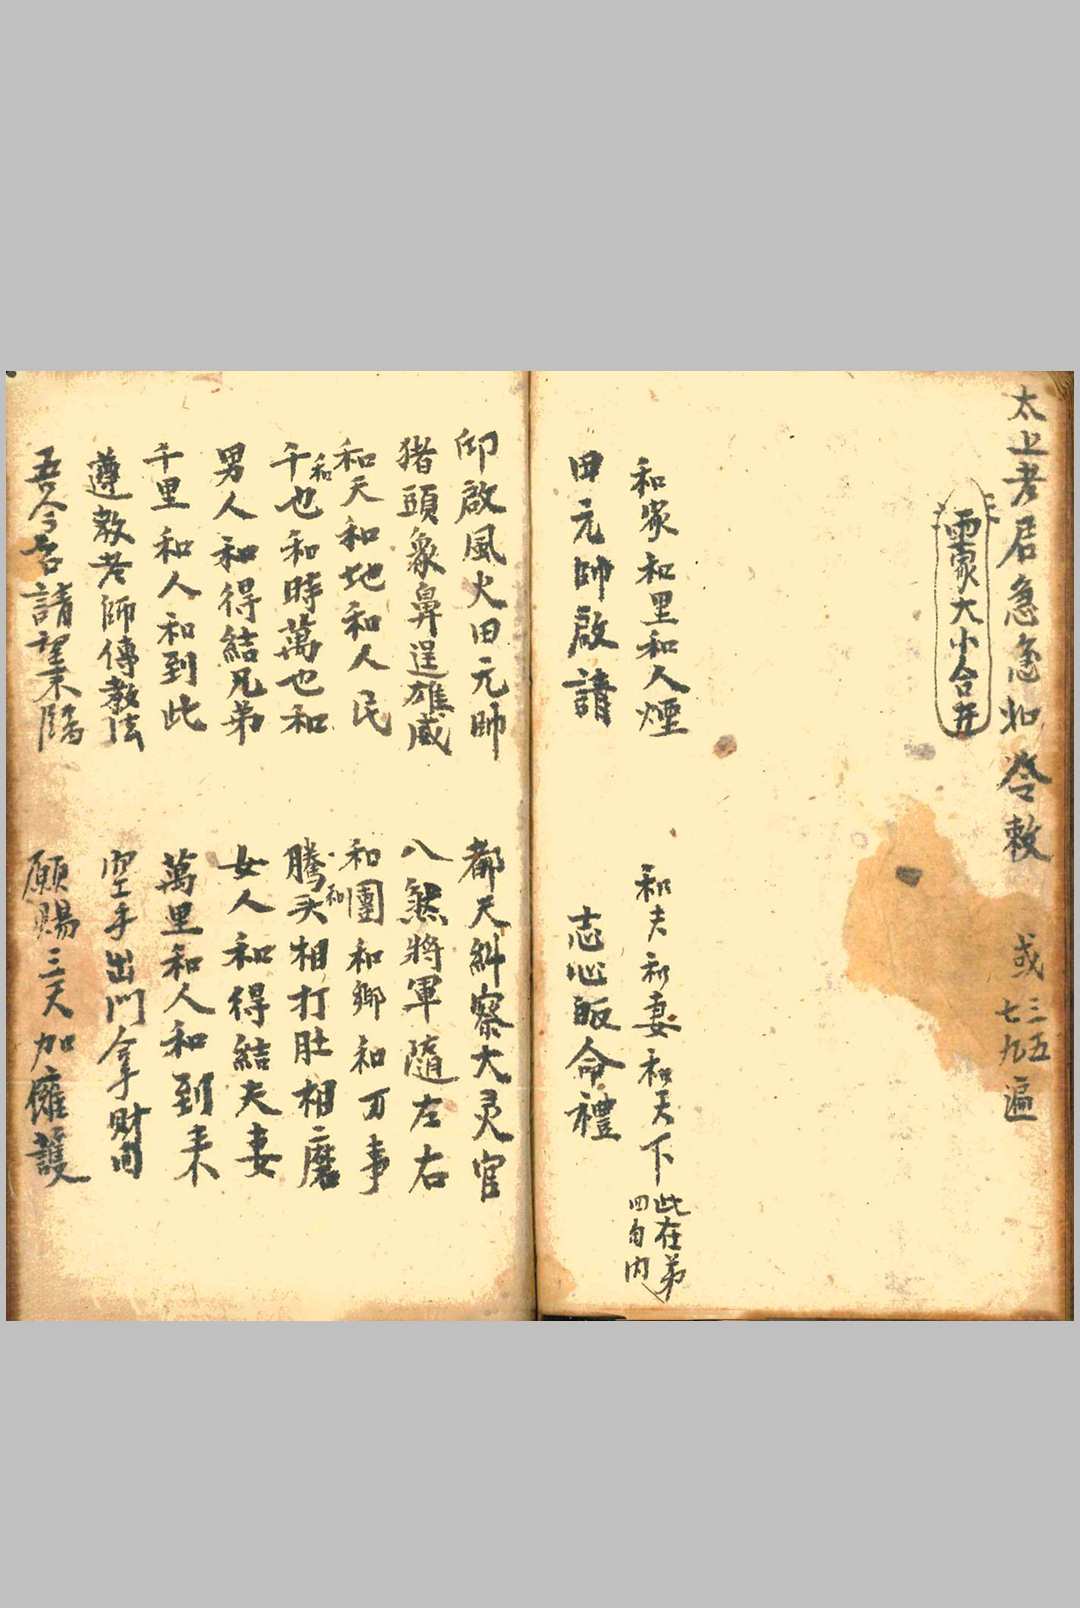 太上老君急急如令敕 或三五七九遍
雨家大小合井
和家和里和人煙 和夫和妻和天下 此在第四句內
田元帥啟請 志心皈命禮
卬啟風火田元帥 都天糾察大灵官
猪頭象鼻逞雄威 八煞將軍隨左右
和天和地和人民 和團和鄉和万事
千和也和時萬也和 騰天和相打肚相磨
男人和得結兄弟 女人和得結夫妻
千里和人和到此 萬里和人和到来
遵教老師傳教法 空手出門拿財回
吾今召請望来臨 願賜三天加擁護